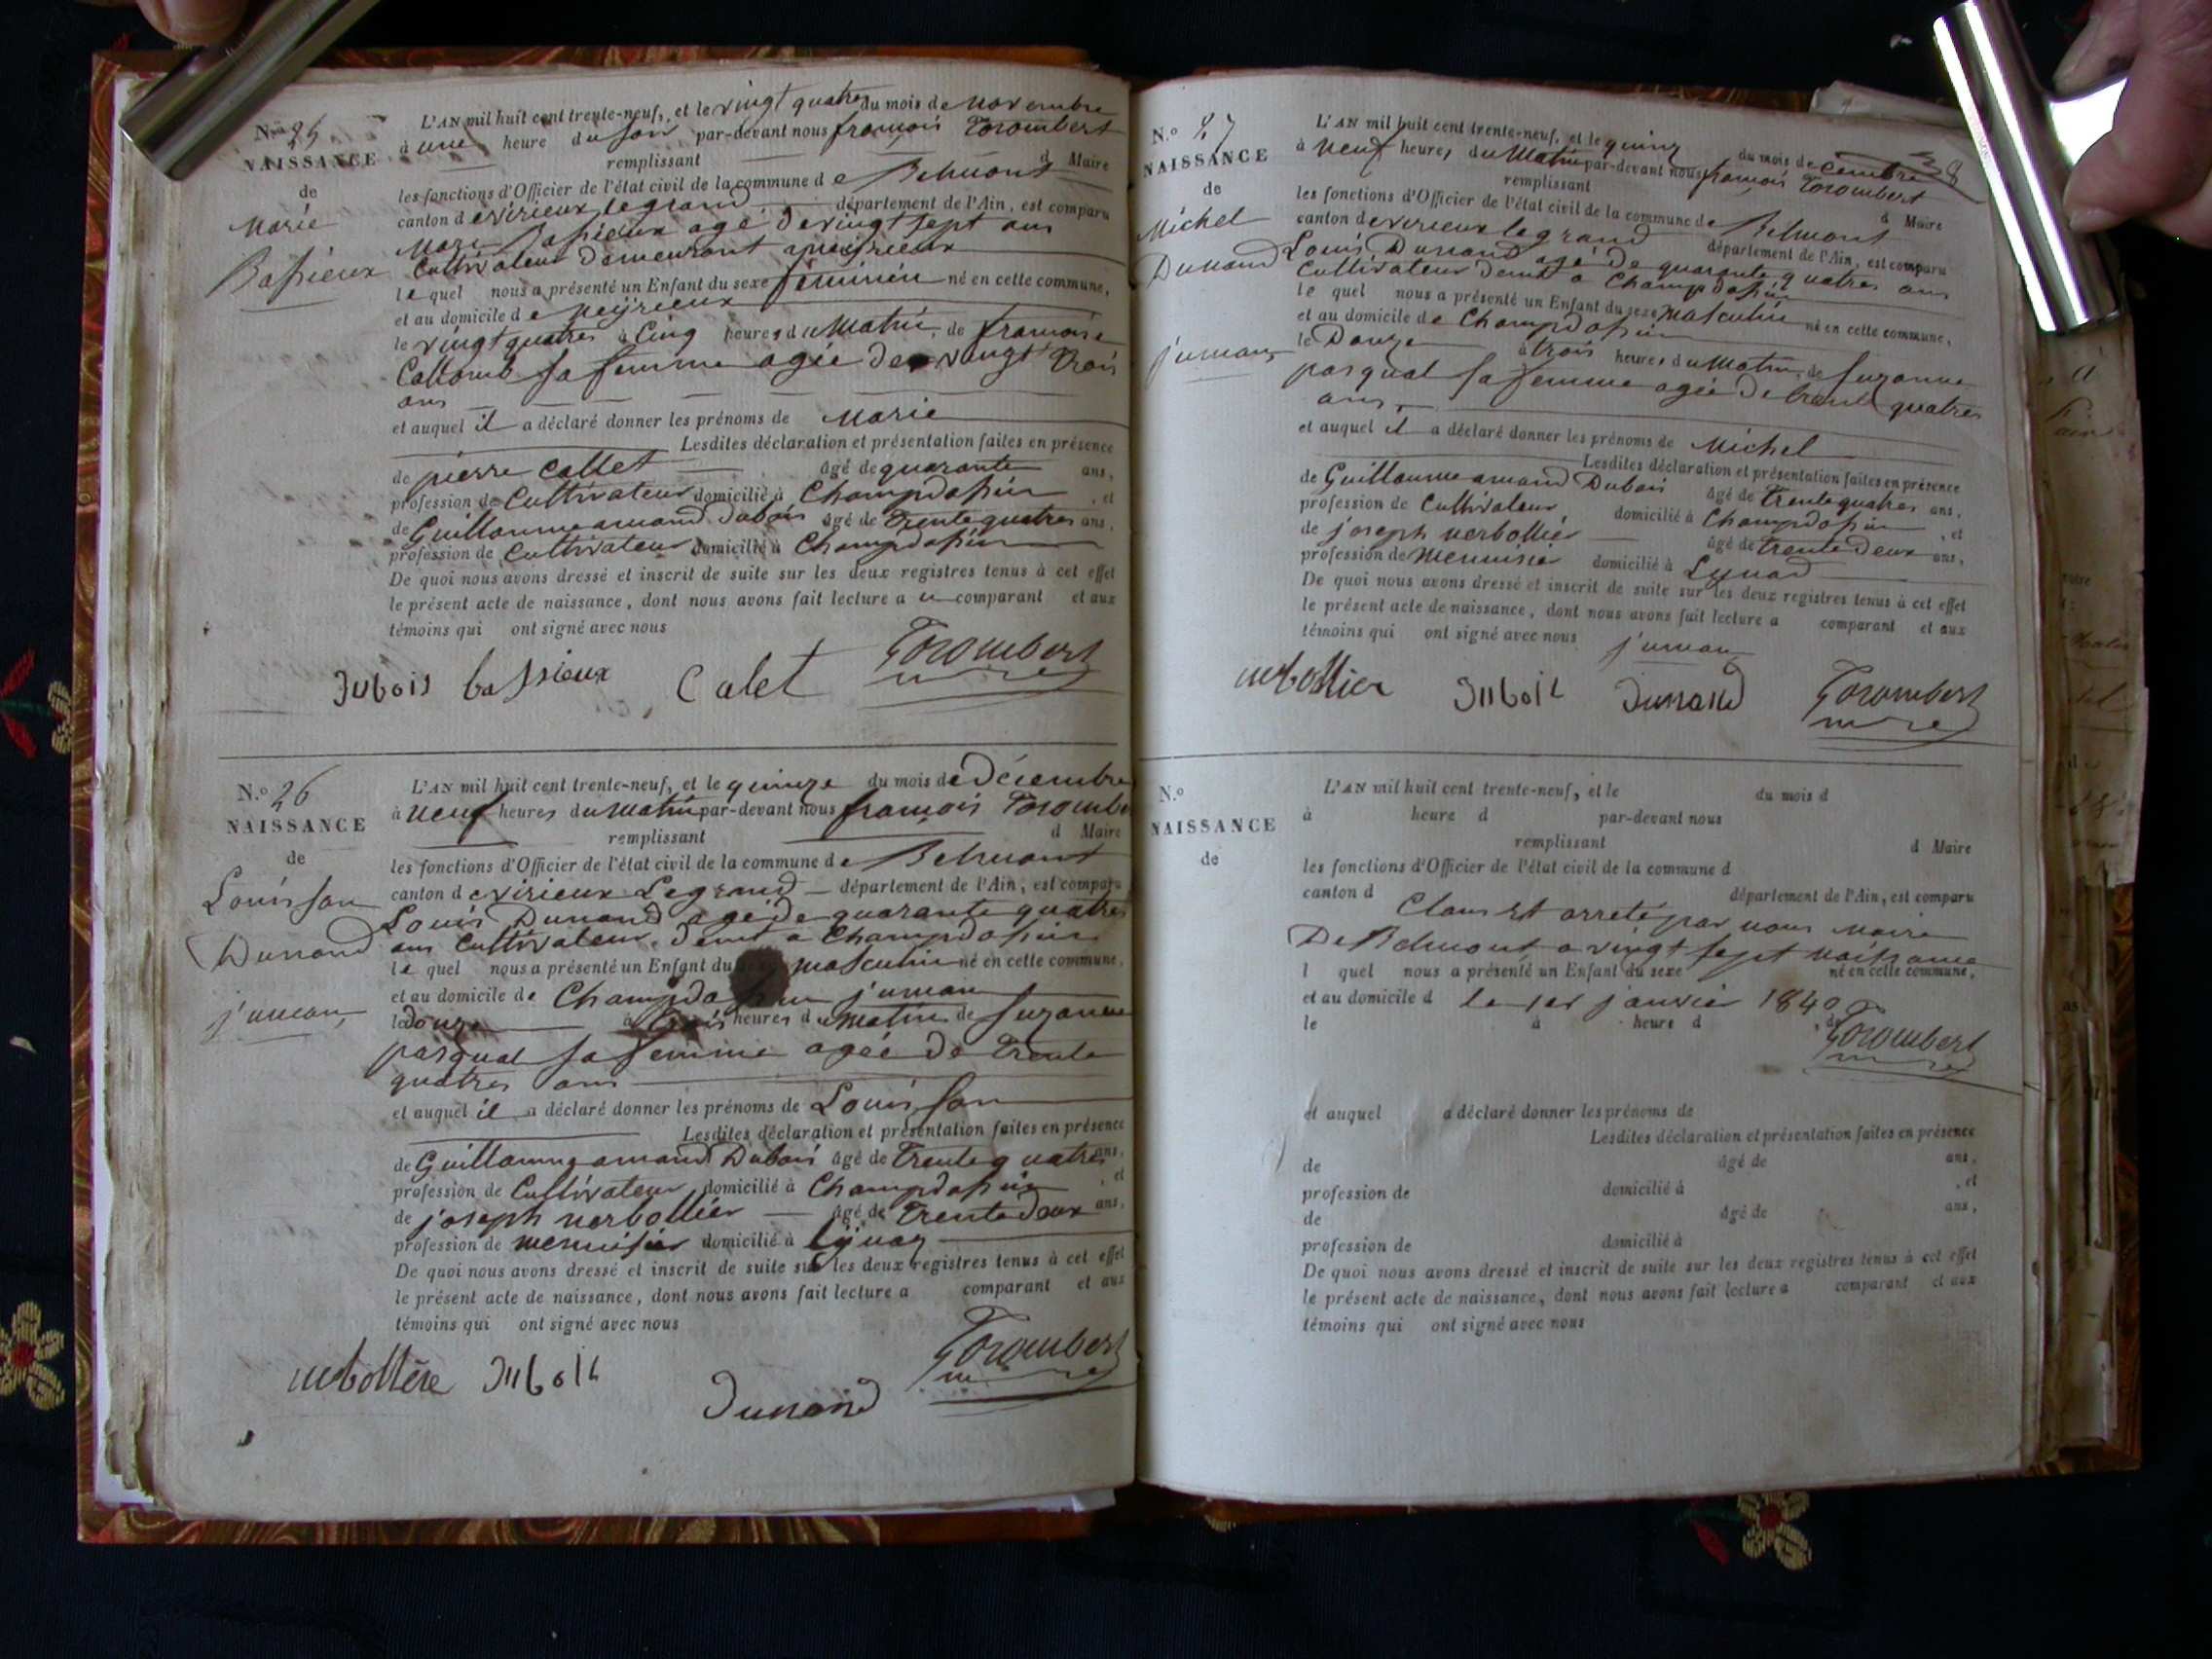 N.o 25
NAISSANCE
de
Marie
Bassieux
L'AN mil huit cent trente-neuf, et le vingt quatre du mois de novembre
à une heure du soir par-devant nous françois Torombert
remplissant d Maire
les fonctions d'Officier de l'état civil de la commune de Belmont
canton de virieux le grand département de l'Ain, est comparu
Bassieux agé de vingt sept ans
Cultivateur demeurant a meyrieux
le quel nous a présenté un Enfant du sexe féminin né en cette commune,
et au domicile de meyrieux
le vingt quatre à Cinq heures du Matin, de francoise
Collomb sa femme agée de vingt trois
ans
et auquel il a déclaré donner les prénoms de Marie
Lesdites déclaration et présentation faites en présence
de pierre Callet âgé de quarante ans,
profession de Cultivateur domicilié à Champdossin, et
de Guillaume amand Dubois âgé de trente quatres ans,
profession de Cultivateur domicilié à Champdossin
De quoi nous avons dressé et inscrit de suite sur les deux registres tenus à cet effet
le présent acte de naissance, dont nous avons fait lecture a u comparant et aux
témoins qui ont signé avec nous
Dubois bassieux Calet Torombert
N.o 26
NAISSANCE
de
Louis son
Dunand
jumau
L'AN mil huit cent trente-neuf, et le quinze du mois de décembre
à neuf heures du Matin par-devant nous françois Torombe
remplissant d Maire
les fonctions d'Officier de l'état civil de la commune de Belmont
canton de virieux Legrand département de l'Ain, est comparu
Louis Dunand agé de quarante quatres
ans Cultivateur demt a Champdossin
le quel nous a présenté un Enfant du masculin né en cette commune,
et au domicile de Champdossin jumau
le douze à trois heures du Matin de suzanne
pasqual sa femme agée de trente
quatres ans
et auquel il a déclaré donner les prénoms de Louis son
Lesdites déclaration et présentation faites en présence
de Guillaume amand Dubois âgé de trente quatres ans,
profession de Cultivateur domicilié à Champdossin, et
de joseph verbollier âgé de trente deux ans,
profession de menuisier domicilié à
De quoi nous avons dressé et inscrit de suite sur les deux registres tenus à cet effet
le présent acte de naissance, dont nous avons fait lecture a comparant et aux
témoins qui ont signé avec nous
Dubois Dunand Torombert
N.o 27
NAISSANCE
de
Michel
Dunand
jumau
L'AN mil huit cent trente-neuf, et le quinz du mois de cembre 28
à neuf heures du Matin par-devant nous françois Torombert
remplissant d Maire
les fonctions d'Officier de l'état civil de la commune de Belmont
canton de virieux le grand département de l'Ain, est comparu
Louis Dunand agé de quarante quatres ans
Cultivateur demt a Champdossin
le quel nous a présenté un Enfant du sexe masculin né en cette commune,
et au domicile de Champdossin
le Douze à trois heures du Matin, de suzanne
pasqual sa femme agée de trente quatres
ans
et auquel il a déclaré donner les prénoms de Michel
Lesdites déclaration et présentation faites en présence
de Guillaume amand Dubois âgé de trente quatres ans,
profession de Cultivateur domicilié à Champdossin, et
de joseph verbollier âgé de trente deux ans,
profession de Menuisié domicilié à
De quoi nous avons dressé et inscrit de suite sur les deux registres tenus à cet effet
le présent acte de naissance, dont nous avons fait lecture a comparant et aux
témoins qui ont signé avec nous jumau
Dubois Dunand Torombert
N.o
NAISSANCE
de
L'AN mil huit cent trente-neuf, et le du mois d
à heure d par-devant nous
remplissant d Maire
les fonctions d'Officier de l'état civil de la commune d
canton d département de l'Ain, est comparu
Clau et arreté par nous Maire
De Belmont a vingt sept naissance
l quel nous a présenté un Enfant du sexe né en cette commune,
et au domicile d le 1er janvier 1840
le à heure d , de
Torombert
et auquel a déclaré donner les prénoms de
Lesdites déclaration et présentation faites en présence
de âgé de ans,
profession de domicilié à , et
de âgé de ans,
profession de domicilié à
De quoi nous avons dressé et inscrit de suite sur les deux registres tenus à cet effet
le présent acte de naissance, dont nous avons fait lecture a comparant et aux
témoins qui ont signé avec nous